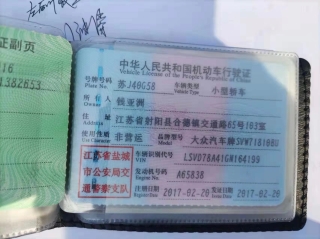 证副页
1382653
中华人民共和国机动车行驶证
Vehicle License of the People's Republic of China
号牌号码 苏J40G58 车辆类型 小型轿车
Plate No. Vehicle Type
所有人 钱亚洲
住址 江苏省射阳县合德镇交通路65号103室
使用性质 非营运 品牌型号 大众汽车牌
江苏省盐城市公安局交通警察支队
车辆识别代号 LSVD78A41GN164199
VIN
发动机号码 A65838
Engine No.
注册日期 2017-02-20 发证日期 2017-02-20